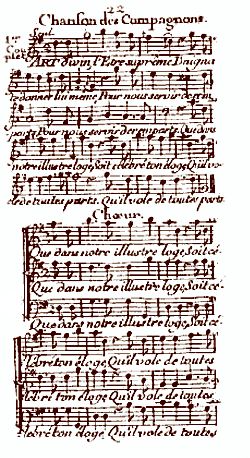 22
Chanson des Compagnons.
1er Coup let
Seul
ART divin l'Etre suprême Daigna
te donner lui même Pour nous servir de rem
parts Pour nous servir de remparts Que dans
notre illustre loge, Soit célébré ton éloge Qu'il vo
le de toutes parts. Qu'il vole de toutes parts.
Chœur.
Que dans notre illustre loge, Soit cé-
Que dans notre illustre loge, Soit cé-
Que dans notre illustre loge, Soit cé-
lébré ton éloge, Qu'il vole de toutes
lébré ton éloge, Qu'il vole de toutes
lébré ton éloge, Qu'il vole de toutes